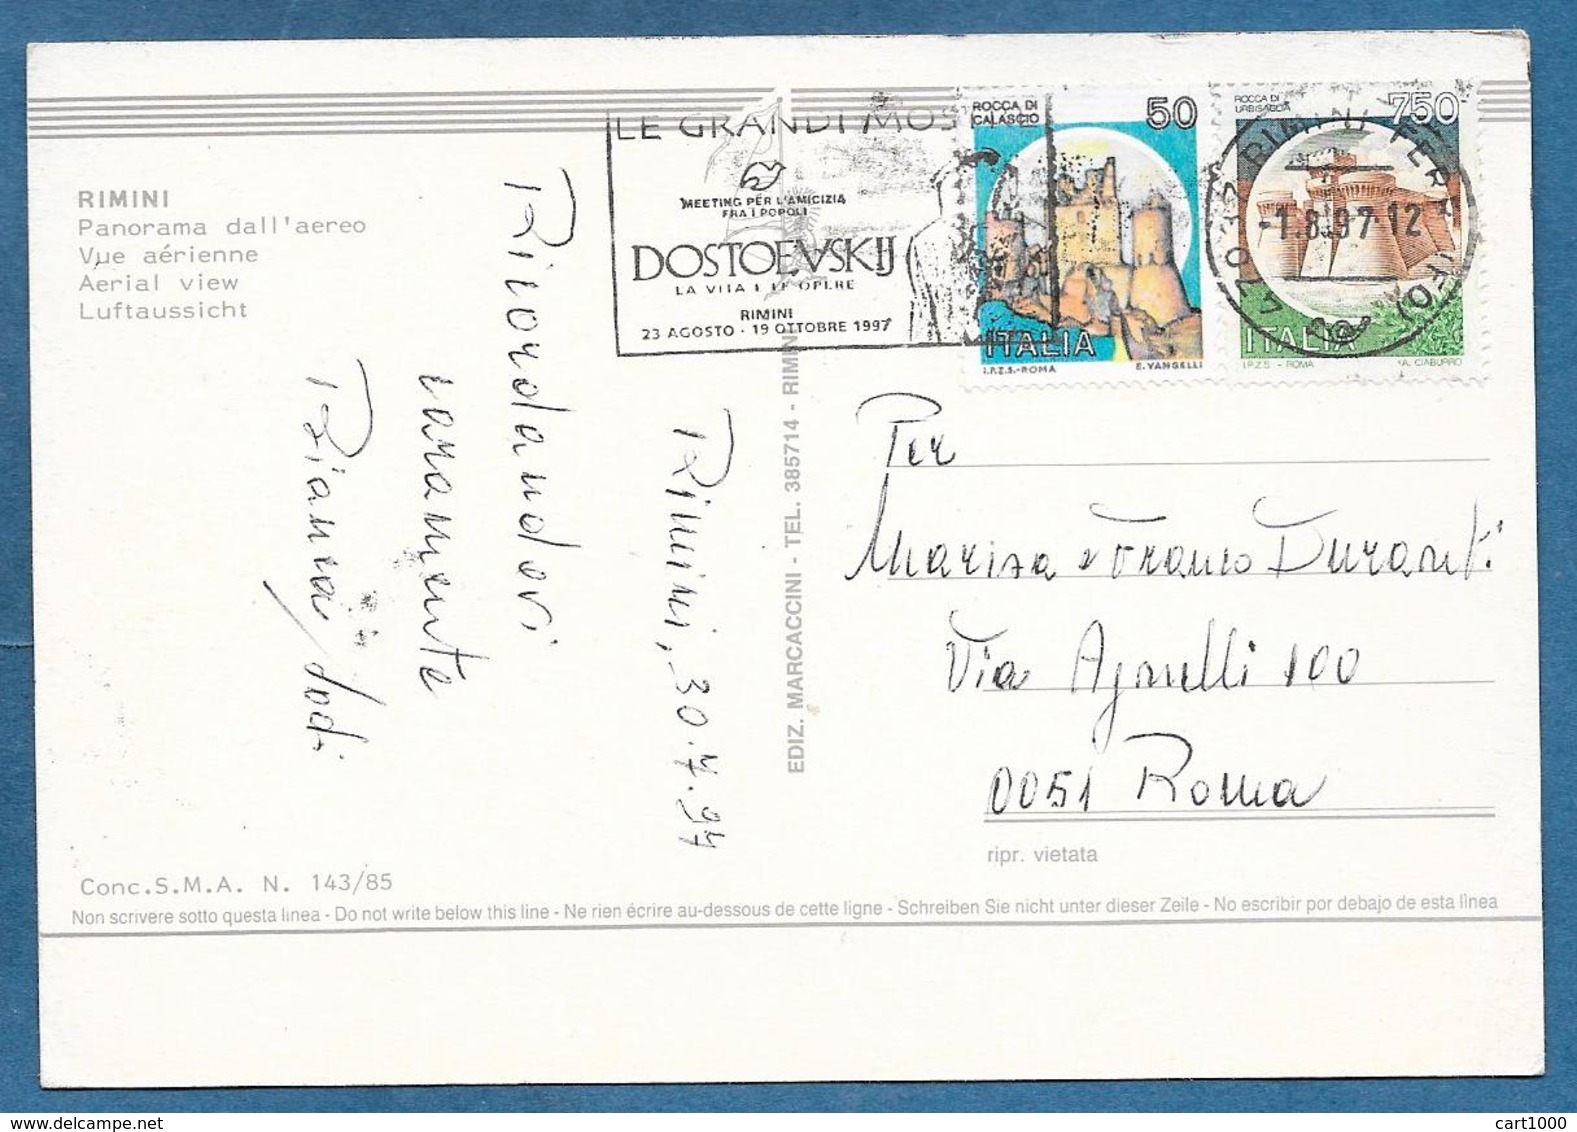 RIMINI
Panorama dall'aereo
Vue aérienne
Aerial view
Luftaussicht
LE GRANDI MOS
MEETING PER L'AMICIZIA
FRA I POPOLI
DOSTOEVSKIJ
LA VITA E LE OPERE
RIMINI
23 AGOSTO - 19 OTTOBRE 1997
ROCCA DI
CALASCIO
50
ITALIA
I.P.Z.S.-ROMA E. VANGELLI
ROCCA DI
URBISAGLIA
750
ITALIA
I.P.Z.S - ROMA A. CIABURRO
47037 RIMINI FERR
-1.8.97-12
(FO)
Rimini, 30.7.97
Ricordandovi
caramente
Bianca
EDIZ. MARCACCINI - TEL. 385714 - RIMINI
Per
Marisa e Franco Duranti
Via Agnelli 100
0051 Roma
ripr. vietata
Conc.S.M.A. N. 143/85
Non scrivere sotto questa linea - Do not write below this line - Ne rien écrire au-dessous de cette ligne - Schreiben Sie nicht unter dieser Zeile - No escribir por debajo de esta lìnea
cart1000